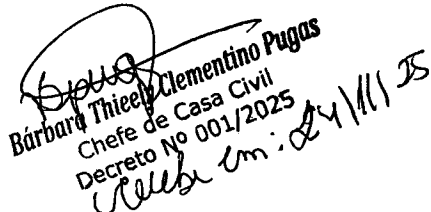 Bárbara Thieely Clementino Pugas
Chefe de Casa Civil
Decreto Nº 001/2025
Recebi em: 24/11/25